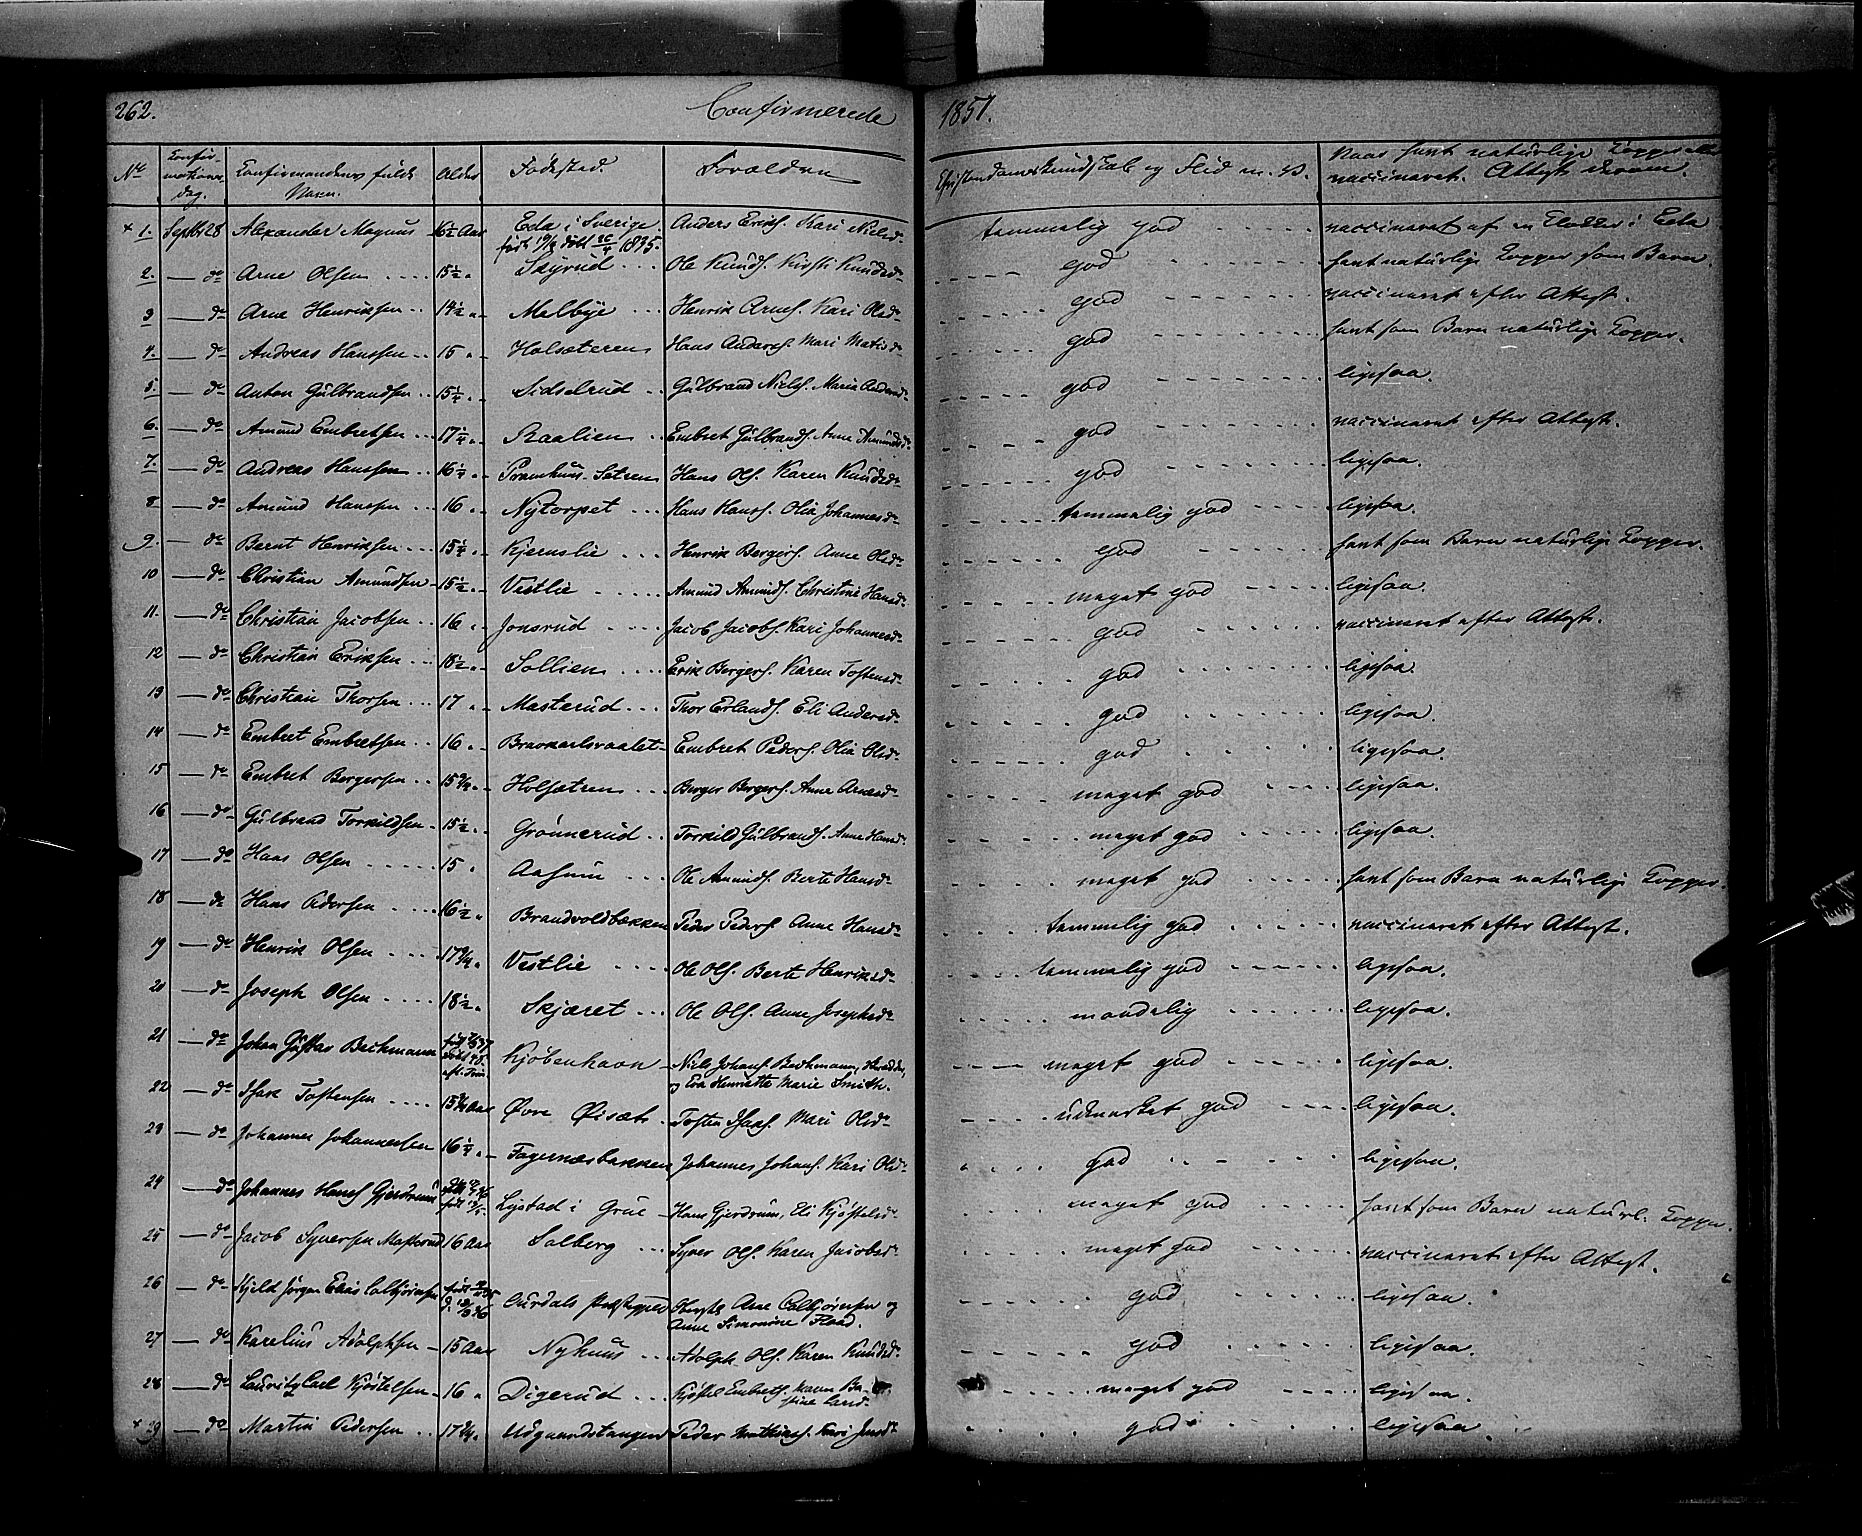 262. Confirmerede 1851.
No Confirmations dag. Confirmandens fulde Navn. Alder Fødested. Forældre Christendomskundskab og Flid m. V. Naar havt naturlige Kopper eller vaccineret. Attest derom.
+ 1. Septbr 28 Alexander Magnus 16½ Aar Eda i Sverige. Anders Erichs. Kari Nielsd. temmelig god vaccineret af en Klokker i Eda
født døbt 1835.
2. do Arne Olsen 15½ Skyrud Ole Knuds. Kirsti Knudsd. god havt naturlige Kopper som Barn.
3 do Arne Henriksen 14½ Melbye Henrik Arnes. Kari Olsd. god vaccineret efter Attest.
4. do Andreas Hanssen 15 Holsæteren Hans Anders. Mari Matisd. god havt som Barn naturlige Kopper.
5. do Anton Gulbrandsen 15¼ Sidselrud Gulbrand Niels. Maria Andersd. god ligesaa.
6. do Amund Embretsen 17¼ Raalien Embret Gulbrands. Anne Amundsd. god vaccineret efter Attest.
7. do Andreas Hanssen 16¼ Pramhuus-Setren Hans Ols. Karen Knudsd. god ligesaa.
8 do Amund Hanssen 16 Nytorpet Hans Hans. Olia Johannesd. temmelig god ligesaa.
9. do Bernt Henriksen 15¼ Kjernslie Henrik Bergers. Anne Olsd. god havt som Barn naturlige Kopper.
10 do Christian Amundsen 15½ Vestlie Amund Amunds. Christine Hansd. meget god ligesaa.
11. do Christian Jacobsen 16 Jonsrud Jacob Jacobs. Kari Johannesd. god vaccineret efter Attest.
12 do Christian Eriksen 18½ Sollien Erik Bergers. Karen Tostensd. god ligesaa.
13 do Christian Thorsen 17 Masterud Thor Erlands. Eli Andersd. god ligesaa.
14 do Embret Embretsen 16 Embret Peders. Olia Olsd. god ligesaa.
15 do Embret Bergersen 15¾ Holsætren Berger Bergers. Anne Arnesd. meget god ligesaa.
16 do Gulbrand Torkildsen 15½ Grønnerud Torkild Gulbrands. Anne Hansd. meget god ligesaa.
17 do Hans Olsen 15 Aasum Ole Amunds. Berte Hansd. meget god havt som Barn naturlige Kopper.
18 do Hans Pedersen 16½ Brandvoldbakken Peder Peders. Anne Hansd. temmelig god vaccineret efter Attest.
19 do Henrik Olsen 17¾ Vestlie Ole Ols. Berte Henriksd. temmelig god ligesaa.
20 do Joseph Olsen 18½ Skjæret Ole Ols. Anne Josephsd. maadelig ligesaa.
21 do Johan Gustav Beckmann født Kjøbenhavn Niels Johans. Beckmann,
og Eva Henriette Marie Smith. meget god ligesaa.
22 do Isak Tostensen 15¾ Aar Øvre Øisæt Tosten Isaks. Mari Olsd. udmærket god ligesaa.
23 do Johannes Johannessen 16¼ Fagernæsbakken Johannes Johans. Kari Olsd. god ligesaa.
24 do Johannes Hans. Gjerdrum Lystad i Grue Hans Gjerdrum, Eli Kjøstelsd. meget god havt som Barn naturl. Kopper.
25 do Jacob Syversen Masterud 16 Aar Solberg Syver Ols. Karen Jacobsd. meget god vaccineret efter Attest.
26 do Kjeld Jørgen Elias Colbjørnsen født Aurdals Præstegjeld Arne Colbjørnsen og
Anne Simonine Flood. god ligesaa.
27 do Karelius Adolphsen 15 Aar Nyhuus Adolph Ols. Karen Knudsd. god ligesaa.
28 do Lauritz Carl Kjøstelsen 16 Digerud Kjøstel Embrets. Maren
meget god ligesaa.
+ 29 do Martin Pedersen 17¾ Peder Mathias. Kari Jensd. god ligesaa.